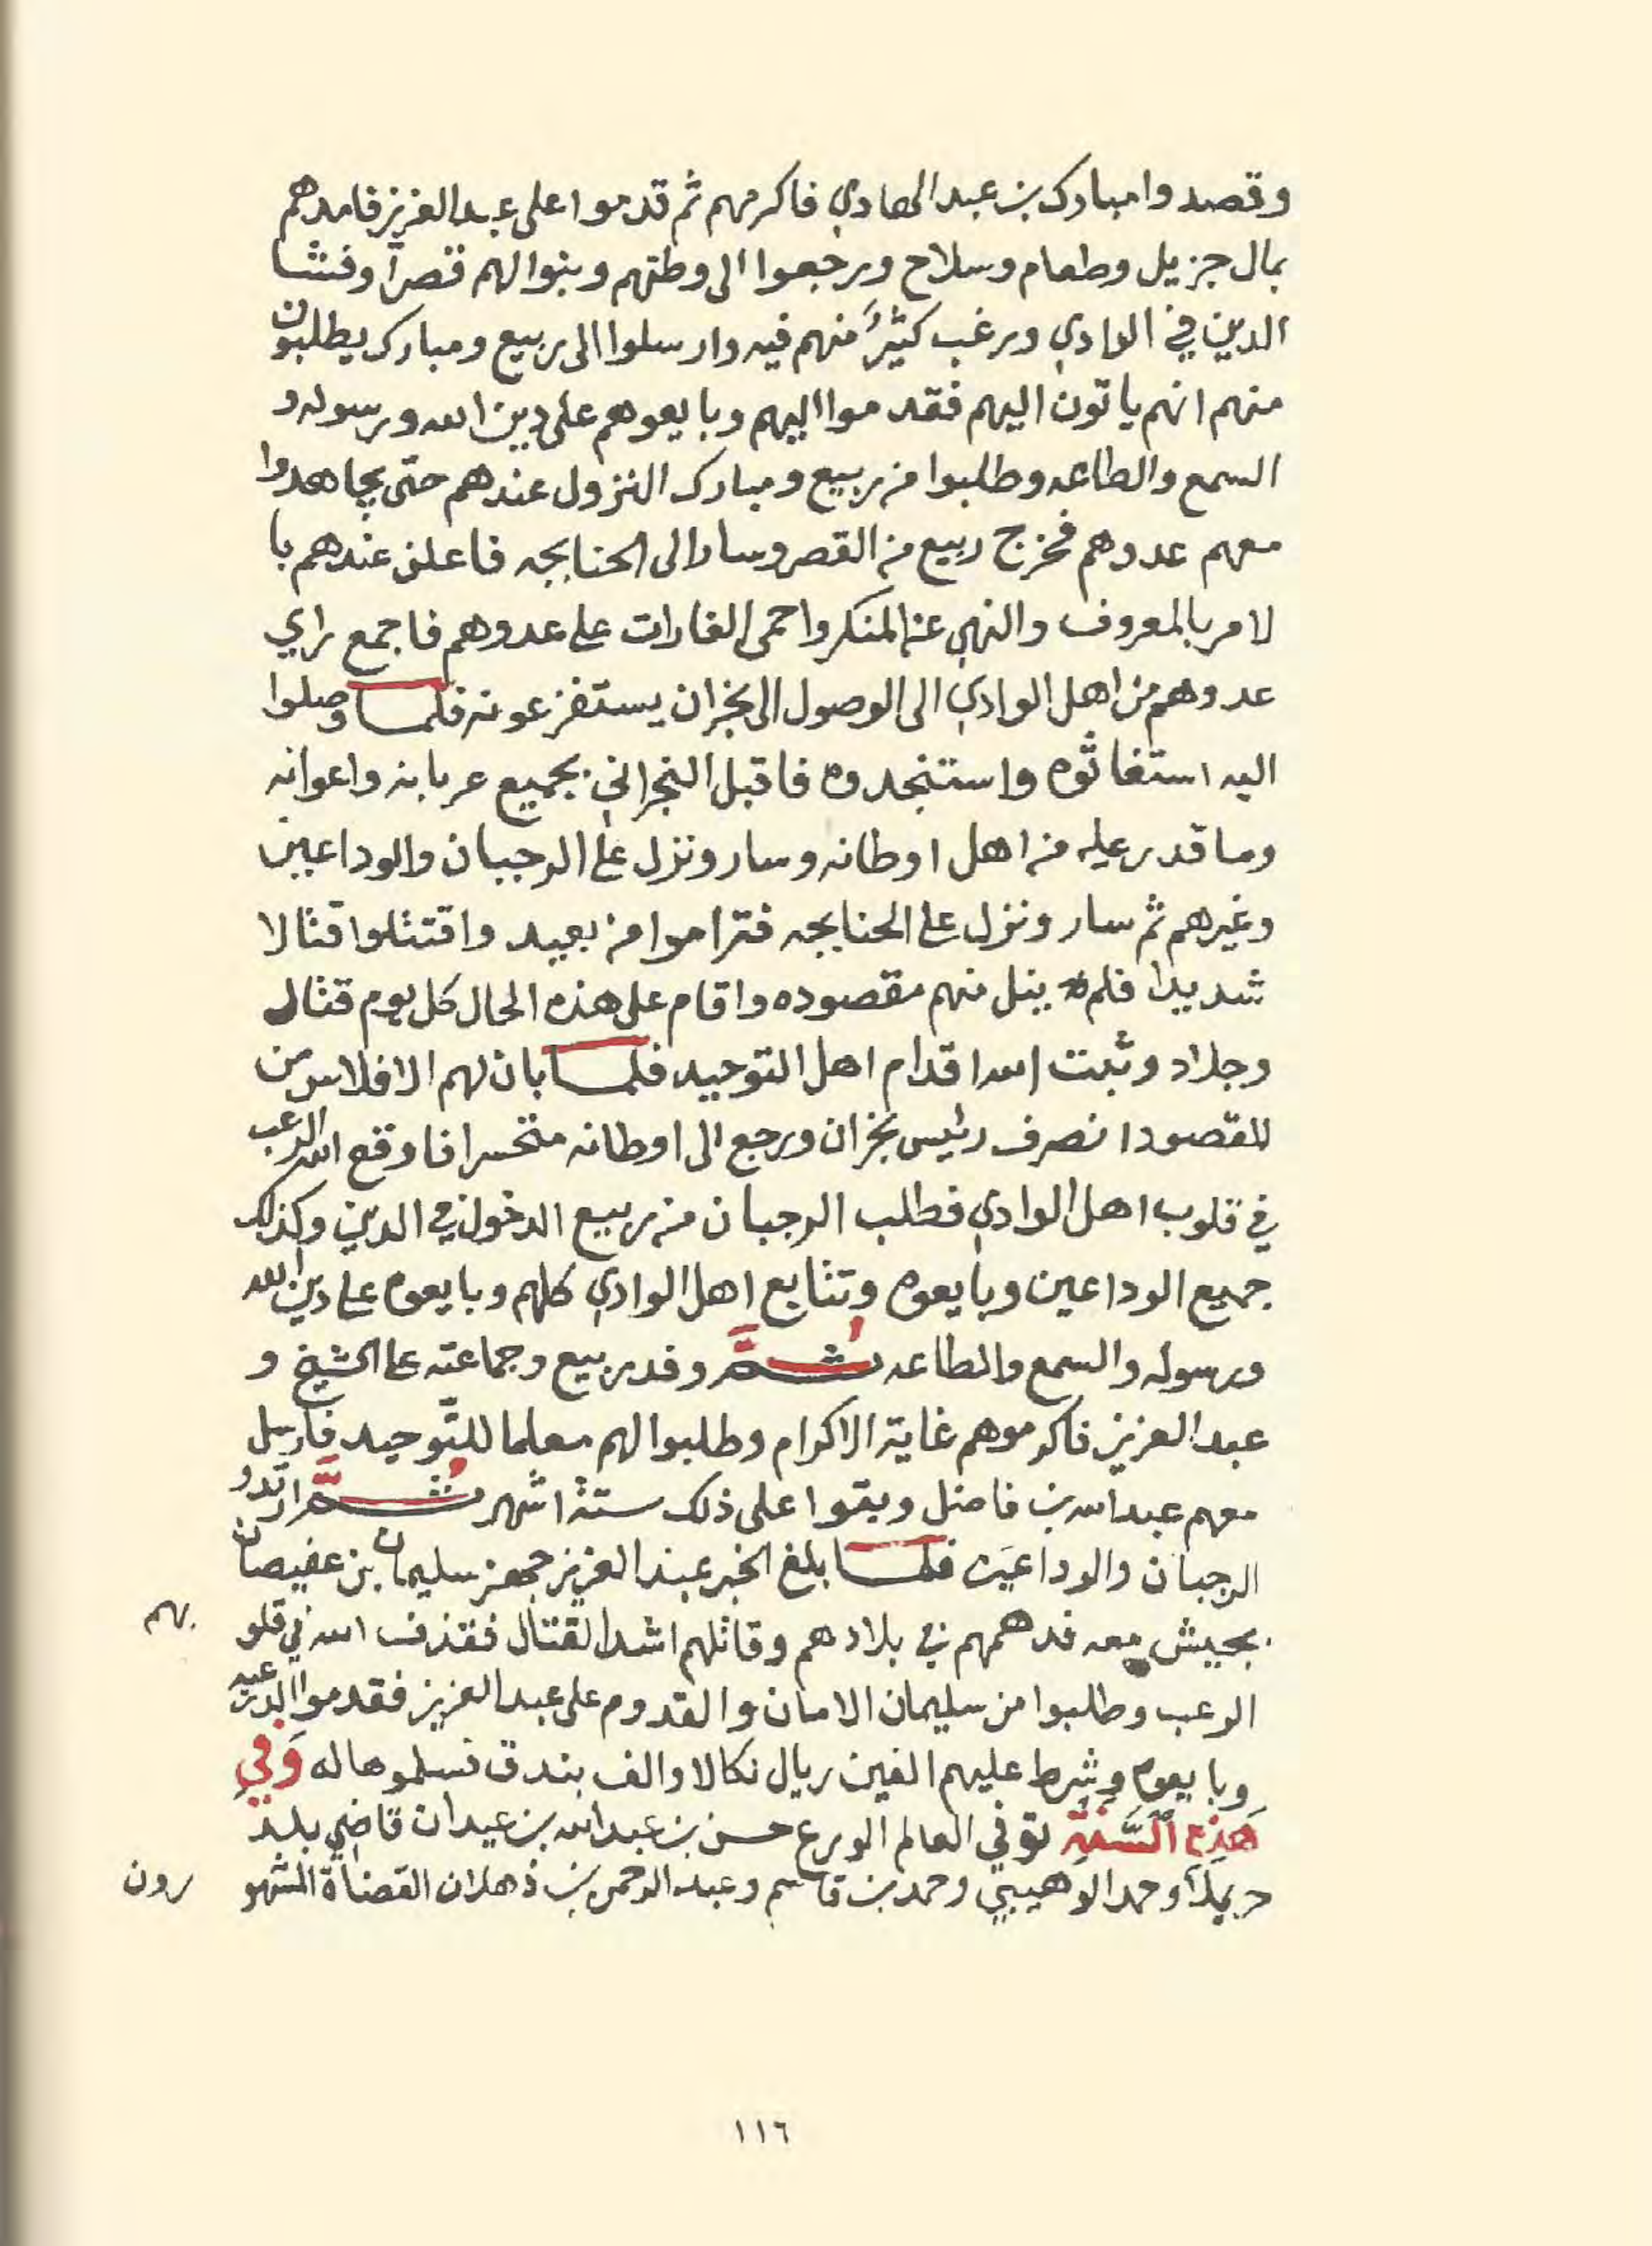 وقصدوا مبارك بن عبد الهادي فاكرمهم ثم قدموا على عبد العزيز فامدهم
بمال جزيل وطعام وسلاح ورجعوا الى وطنهم وبنوا لهم قصراً وفشا
الدين في الوادي ورغب كثيرٌ منهم فيه وارسلوا الى ربيع ومبارك يطلبون
منهم انهم ياتون اليهم فقدموا اليهم وبايعوهم على دين الله ورسوله و
السمع والطاعه وطلبوا من ربيع ومبارك النزول عندهم حتى يجاهدوا
معهم عدوهم فخرج ربيع من القصر وسار الى الحنابجه فاعلن عندهم با
لامر بالمعروف والنهي عن المنكر واحمى الغارات على عدوهم فاجمع راي
عدوهم من اهل الوادي الى الوصول الى نجران يستفزعونه فلما وصلوا
اليه استغاثوه واستنجدوه فاقبل النجراني بجميع عربانه واعوانه
وما قدر عليه من اهل اوطانه وسار ونزل على الرجبان والوداعين
وغيرهم ثم سار ونزل على الحنابجه فتراموا من بعيد واقتتلوا قتالا
شديدا فلم ينل منهم مقصوده واقام على هذه الحال كل يوم قتال
وجلاد وثبت الله اقدام اهل التوحيد فلما بان لهم الافلاس من
المقصود انصرف رئيس نجران ورجع الى اوطانه متحسرا فاوقع الله الرعب
في قلوب اهل الوادي فطلب الرجبان من ربيع الدخول في الدين وكذلك
جميع الوداعين وبايعوه وتتابع اهل الوادي كلهم وبايعوه على دين الله
ورسوله والسمع والطاعه ثُمَّ وفد ربيع وجماعته على الشيخ و
عبد العزيز فاكرموهم غاية الاكرام وطلبوا لهم معلما للتوحيد فارسل
معهم عبد الله بن فاضل وبقوا على ذلك ستة اشهر ثُمَّ ارتدوا
الرجبان والوداعين فلما بلغ الخبر عبد العزيز جهز سليمان بن عفيصان
بجيش معه فدهمهم في بلادهم وقاتلهم اشد القتال فقذف الله في قلو
بهم
الرعب وطلبوا من سليمان الامان والقدوم على عبد العزيز فقدموا الدرعيه
وبايعوه وشرط عليهم الفين ريال نكالا والف بندق فسلموها له وَفي
هَذِهِ السَّنَةِ توفي العالم الورع حسن بن عبد الله بن عيدان قاضي بلد
حريملا وحمد الوهيبي وحمد بن قاسم وعبد الرحمن بن ذهلان القضاة المشهو
رون
١١٦